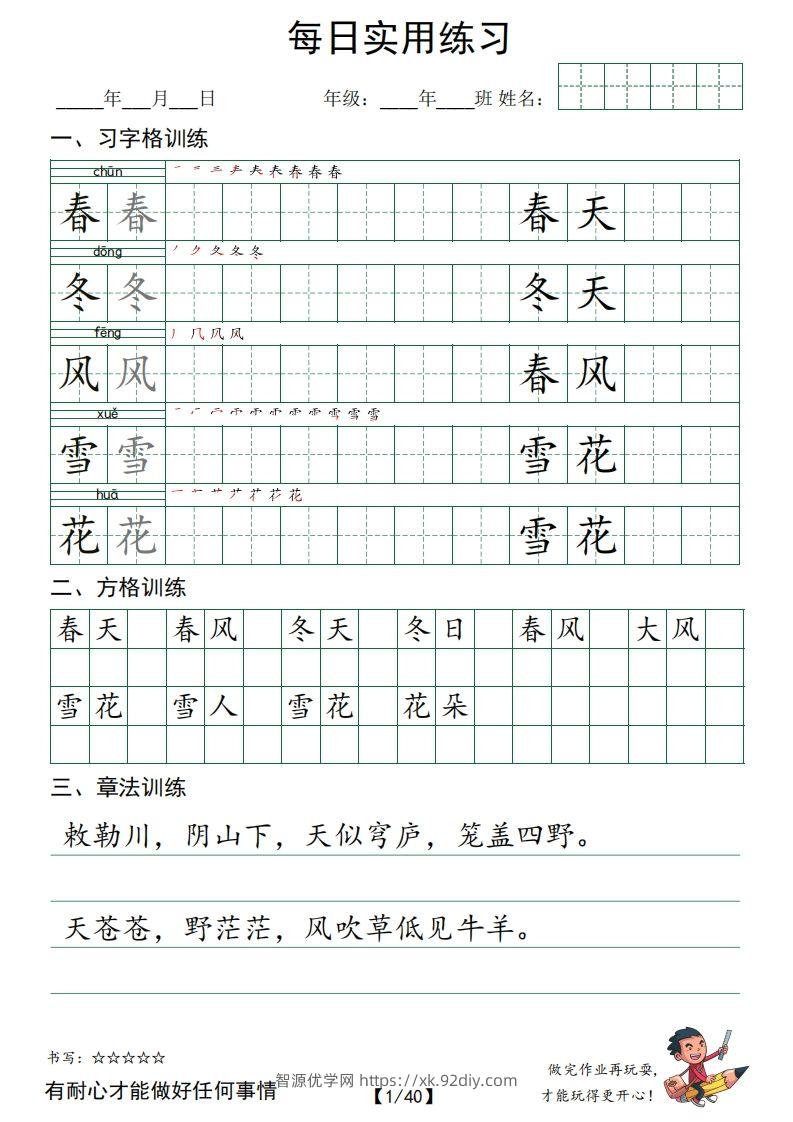 每日实用练习
_____年___月___日 年级：____年____班 姓名：
一、习字格训练
chūn
春 春 春 天
dōng
冬 冬 冬 天
fēng
风 风 春 风
xuě
雪 雪 雪 花
huā
花 花 雪 花
二、方格训练
春天 春风 冬天 冬日 春风 大风
雪花 雪人 雪花 花朵
三、章法训练
敕勒川，阴山下，天似穹庐，笼盖四野。
天苍苍，野茫茫，风吹草低见牛羊。
书写：☆☆☆☆☆
有耐心才能做好任何事情
智源优学网 https://xk.92diy.com
【1/40】
做完作业再玩耍，
才能玩得更开心！